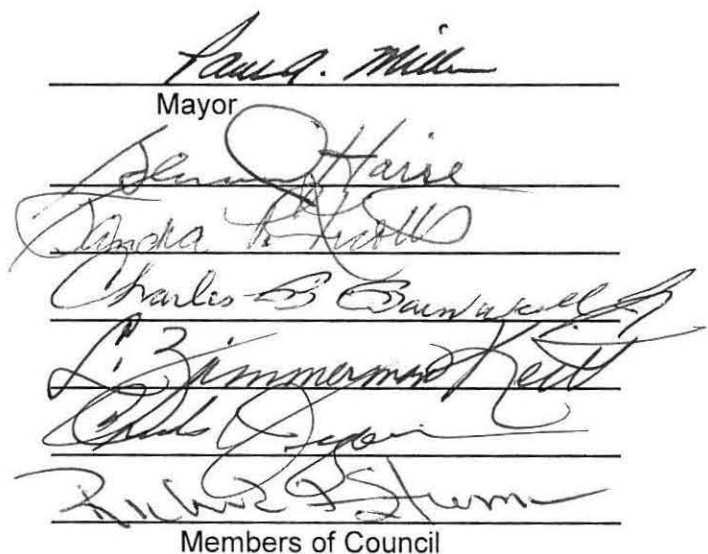 Paul A. Miller
Mayor
Haire
Sandra P. Knotts
Charles B Barnwell Jr
L. Zimmerman Keitt
Charles
Richard F Stroman
Members of Council